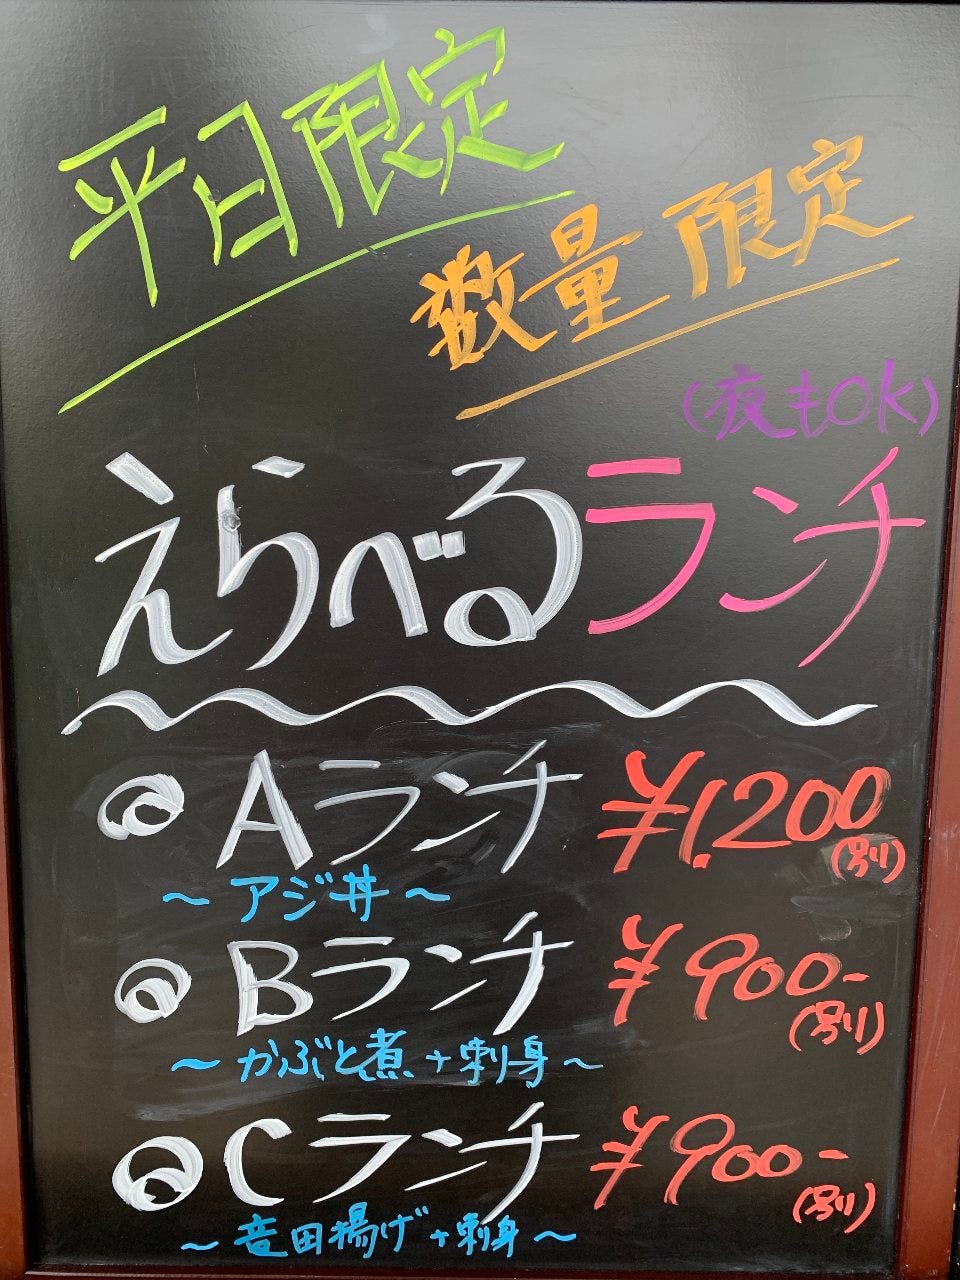 平日限定
数量限定
(夜もOK)
えらべるランチ
Aランチ ¥1,200
(別)
～アジ丼～
Bランチ ¥900-
(別)
～かぶと煮+刺身～
Cランチ ¥900-
(別)
～竜田揚げ+刺身～